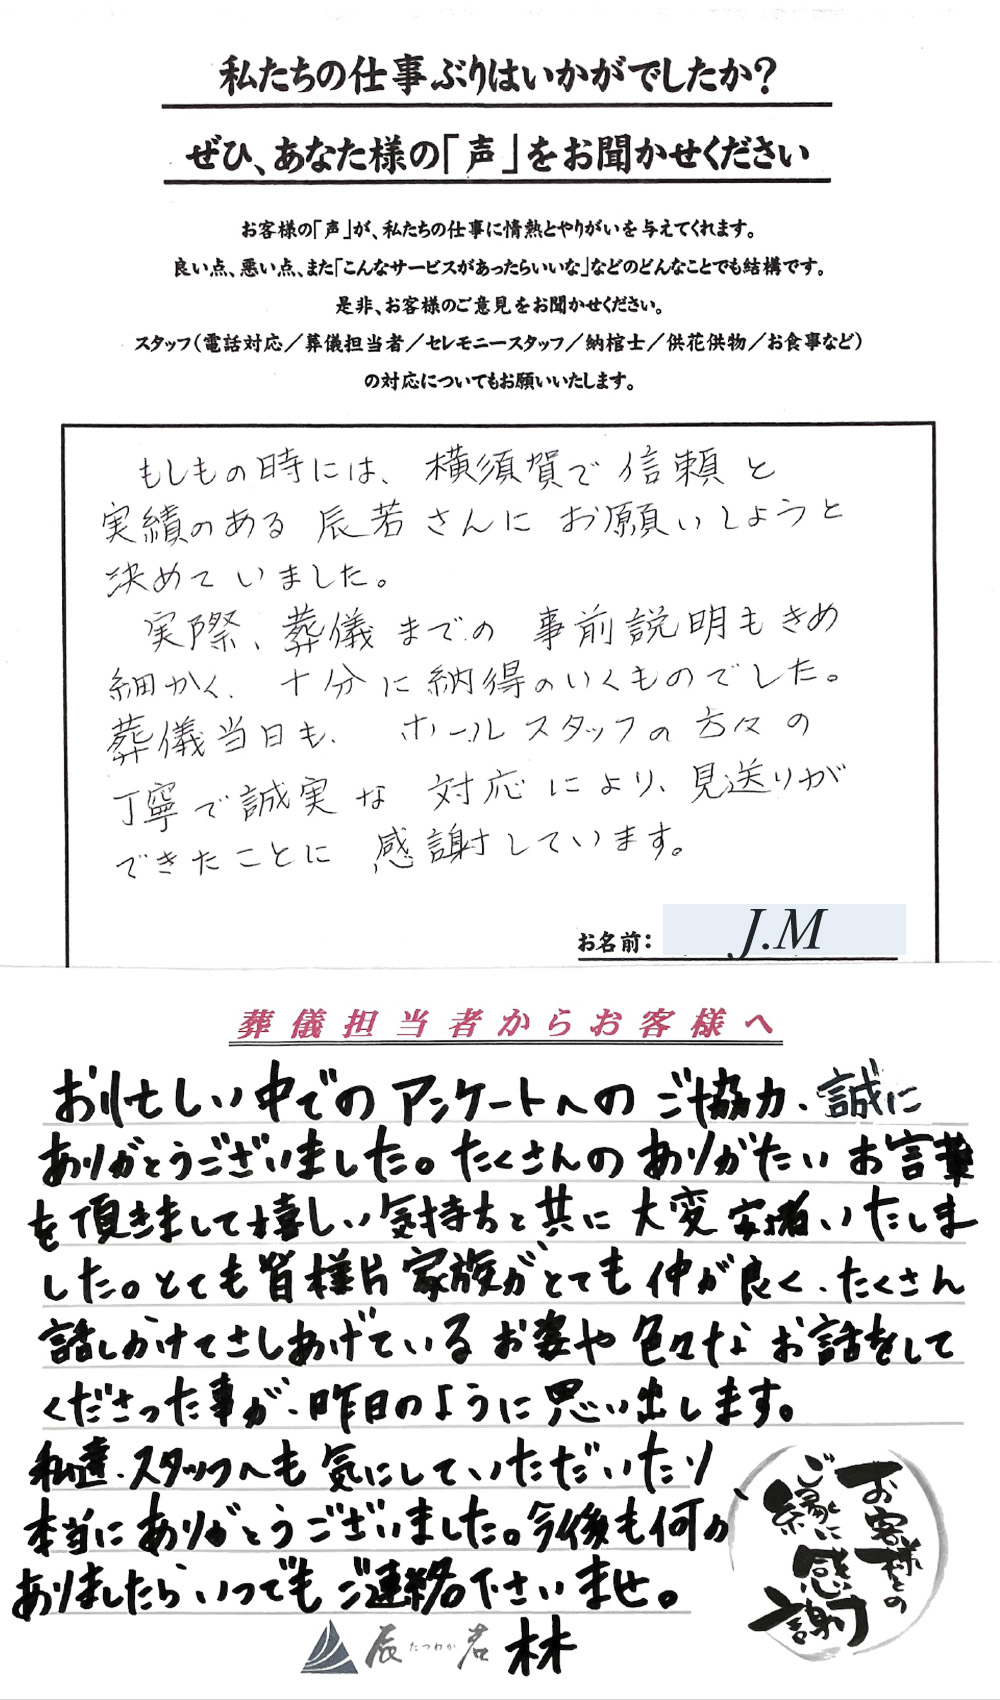 私たちの仕事ぶりはいかがでしたか?
ぜひ、あなた様の「声」をお聞かせください
お客様の「声」が、私たちの仕事に情熱とやりがいを与えてくれます。
良い点、悪い点、また「こんなサービスがあったらいいな」などのどんなことでも結構です。
是非、お客様のご意見をお聞かせください。
スタッフ(電話対応/葬儀担当者/セレモニースタッフ/納棺士/供花供物/お食事など)
の対応についてもお願いいたします。
もしもの時には、横須賀で信頼と
実績のある辰若さんにお願いしようと
決めていました。
実際、葬儀までの事前説明もきめ
細かく、十分に納得のいくものでした。
葬儀当日も、ホールスタッフの方々の
丁寧で誠実な対応により、見送りが
できたことに感謝しています。
お名前: J.M
葬儀担当者からお客様へ
お忙しい中でのアンケートへのご協力、誠に
ありがとうございました。たくさんのありがたいお言葉
を頂きまして嬉しい気持ちと共に大変安堵いたしま
した。とても皆様片家族がとても仲が良く、たくさん
話しかけてさしあげているお姿や色々なお話をして
くださった事が、昨日のように思い出します。
私達、スタッフへも気にしていただいたり、
本当にありがとうございました。今後も何か
ありましたらいつでもご連絡下さいませ。
お客様との
ご縁に
感謝
辰若 たつわか 林